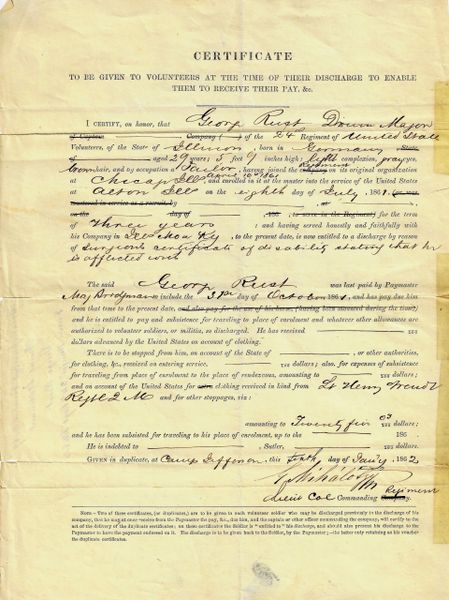 CERTIFICATE
TO BE GIVEN TO VOLUNTEERS AT THE TIME OF THEIR DISCHARGE TO ENABLE
THEM TO RECEIVE THEIR PAY, &c.
I CERTIFY, on honor, that George Rust Drum Major
of Captain Company ( ) of the 24 Regiment of United States
Volunteers, of the State of Illinois, born in Germany State
of aged 29 years; 5 feet 9 inches high; light complexion, gray eyes,
hair, and by occupation a Tailor, having joined the Company Regiment on its original organization
at Chicago Ill, and enrolled in it at the muster into the service of the United States
at Alton Ill on the eighth day of July, 1861, (or was
mustered in service as a recruit by at
on the day of , 186 , to serve in the Regiment) for the term
of Three years : and having served honestly and faithfully with
his Company in to the present date, is now entitled to a discharge by reason
of Surgeons certificate of disability stating that he
is afflicted with
The said George Rust was last paid by Paymaster
Maj Bridgman to include the 31st day of October 1861, and has pay due him
from that time to the present date,
and he is entitled to pay and subsistence for traveling to place of enrolment and whatever other allowances are
authorized to volunteer soldiers, or militia, so discharged. He has received
dollars advanced by the United States on account of clothing.
There is to be stopped from him, on account of the State of , or other authorities,
for clothing, &c., received on entering service, dollars; also, for expenses of subsistence
for traveling from place of enrolment to place of rendezvous, amounting to dollars;
and on account of the United States for clothing received in kind from Lt Henry
Regtl Q M and for other stoppages, viz:
amounting to Twenty five dollars;
and he has been subsisted for traveling to his place of enrolment, up to the 186 .
He is indebted to , Sutler, dollars.
GIVEN in duplicate, at Camp Jefferson, this day of Jany, 1862
G Mihalotzy
Lieut Col Commanding Company. Regiment
NOTE.—Two of these certificates, (or duplicates,) are to be given to each volunteer soldier who may be discharged previously to the discharge of his
company, that he may at once receive from the Paymaster the pay, &c., due him, and the captain or other officer commanding the company, will certify to the
act of the delivery of the duplicate certificates: on these certificates the Soldier is "entitled to" his discharge, and should also present his discharge to the
Paymaster to have the payment endorsed on it. The discharge is to be given back to the Soldier, by the Paymaster;—the latter only retaining as his voucher
the duplicate certificates.